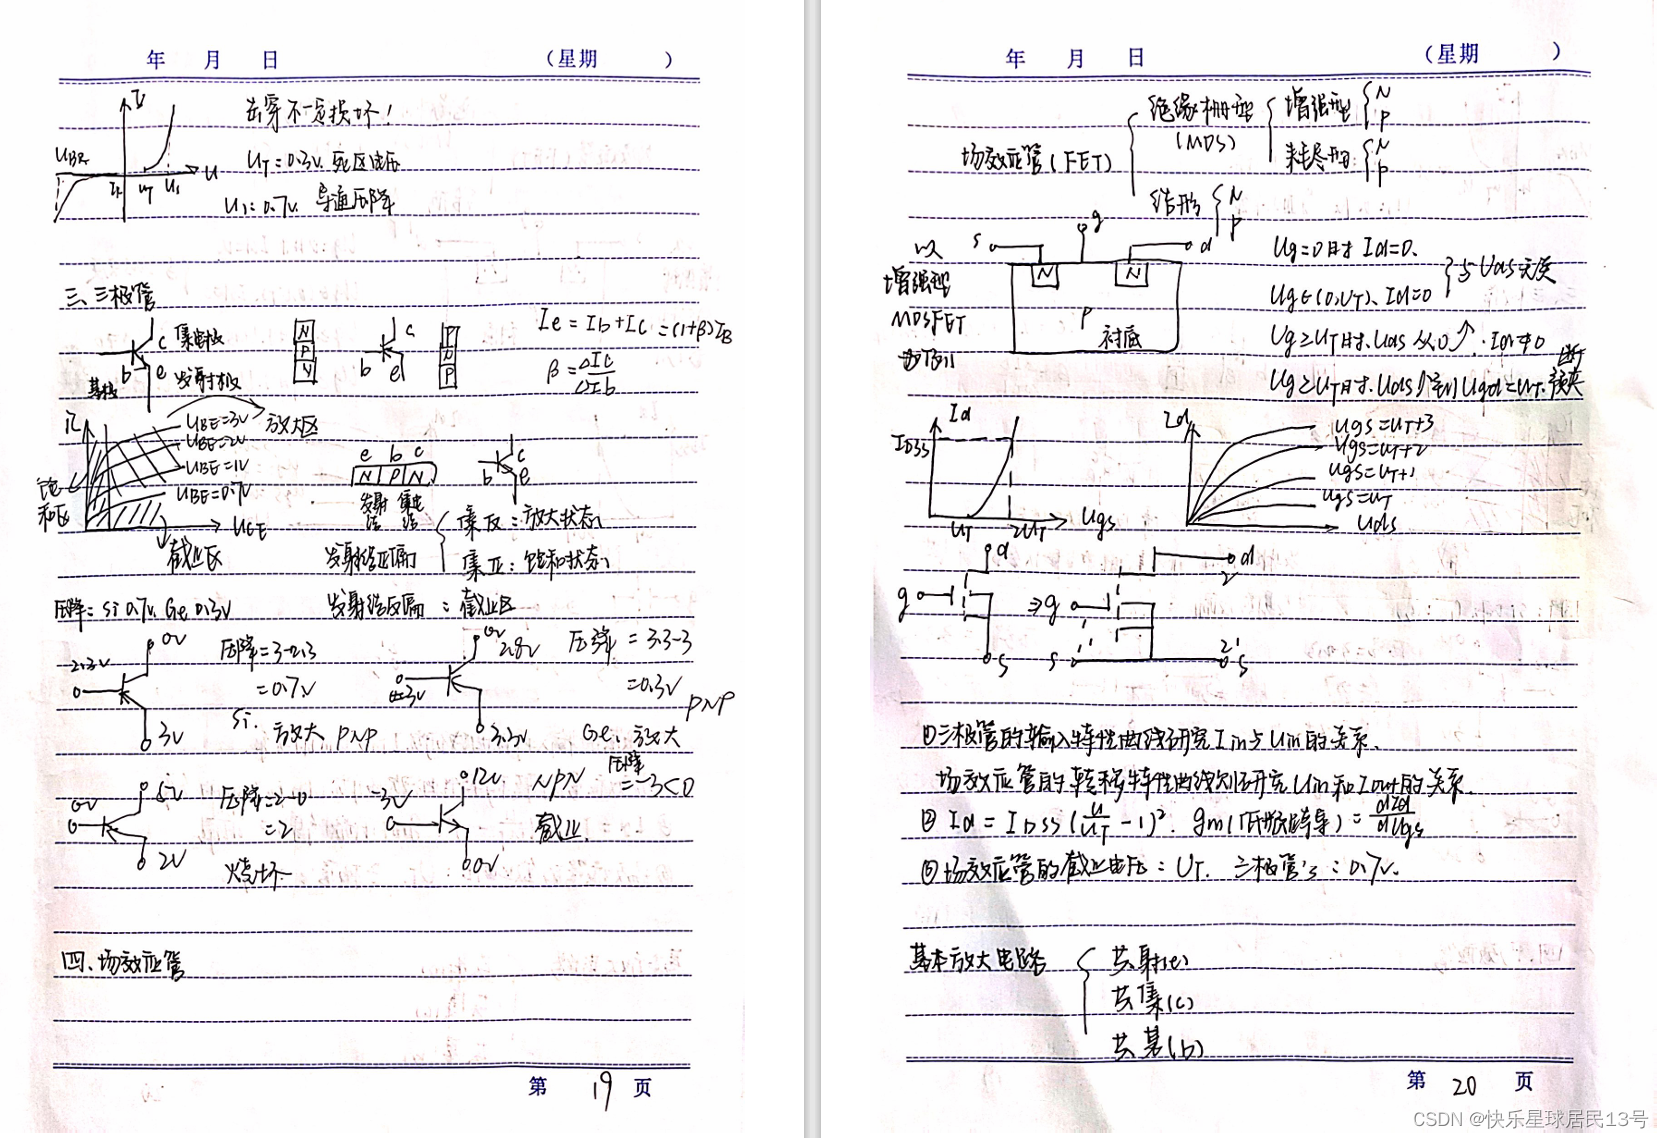 年 月 日 (星期 )
I
击穿不一定损坏!
UBR
UT=0.3V. 死区电压
U
UT U1
U1=0.7V. 导通压降
三、三极管
c 集电极
b
基极
e 发射极
N
P
N
c
b
e
P
N
P
Ie = Ib+Ic = (1+β)IB
β = ΔIc
ΔIb
ic
UBE=3V 放大区
UBE=2V
UBE=1V
UBE=0.7V
饱和区
UCE
截止区
e b c
N P N
发射结 集电结
b c e
集反: 放大状态
发射结正偏
集正: 饱和状态
压降: Si 0.7V. Ge 0.3V
发射结反偏 : 截止区
0V
2.3V
3V
压降=3-2.3
=0.7V
Si. 放大 PNP
0V
2.8V
3V
3.3V
压降 = 3.3-3
=0.3V
PNP
Ge. 放大
0V
5V
2V
压降=2-0
=2
烧坏
12V
-3V
0V
NPN
压降
=-3<0
截止
四、场效应管
第 19 页
年 月 日 (星期 )
场效应管(FET)
绝缘栅型
(MOS)
增强型
N
P
耗尽型
N
P
结形
N
P
以
增强型
MOSFET
为例
s g d
N N
P
衬底
Ug=0时 Id=0.
Ug∈(0,UT)、Id=0
与Uds无关
Ug≥UT时.Uds从0↑.Id≠0
Ug≥UT时.Uds

Ugd=UT.
预夹断
Id
IDSS
UT 2UT Ugs
Id
Ugs=UT+3
Ugs=UT+2
Ugs=UT+1
Ugs=UT
Uds
d
g
s
⇒
g
d
2
1
1'
s
2'
s
①三极管的输入特性曲线研究Iin与Uin的关系.
场效应管的转移特性曲线则研究Uin和Iout的关系.
② Id = IDSS(U/UT -1)². gm(低频跨导) = dId/dUgs
③场效应管的截止电压: UT. 三极管's: 0.7V.
基本放大电路
共射(e)
共集(c)
共基(b)
第 20 页
CSDN @快乐星球居民13号